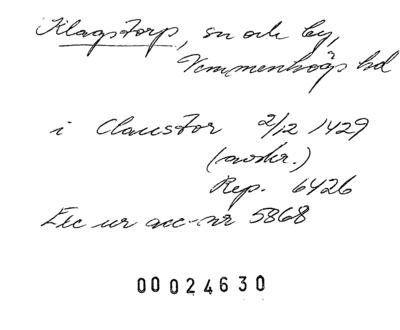 Klagstorp, sn och by,
Vemmenhögs hd
i Clawstor 2/12 1429
(avskr.)
Rep. 6426
Exc ur acc-nr 5868
00024630